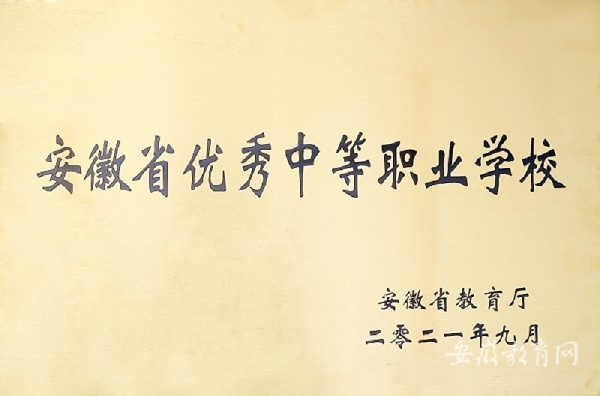 安徽省优秀中等职业学校
安徽省教育厅
二零二一年九月
安徽教育网